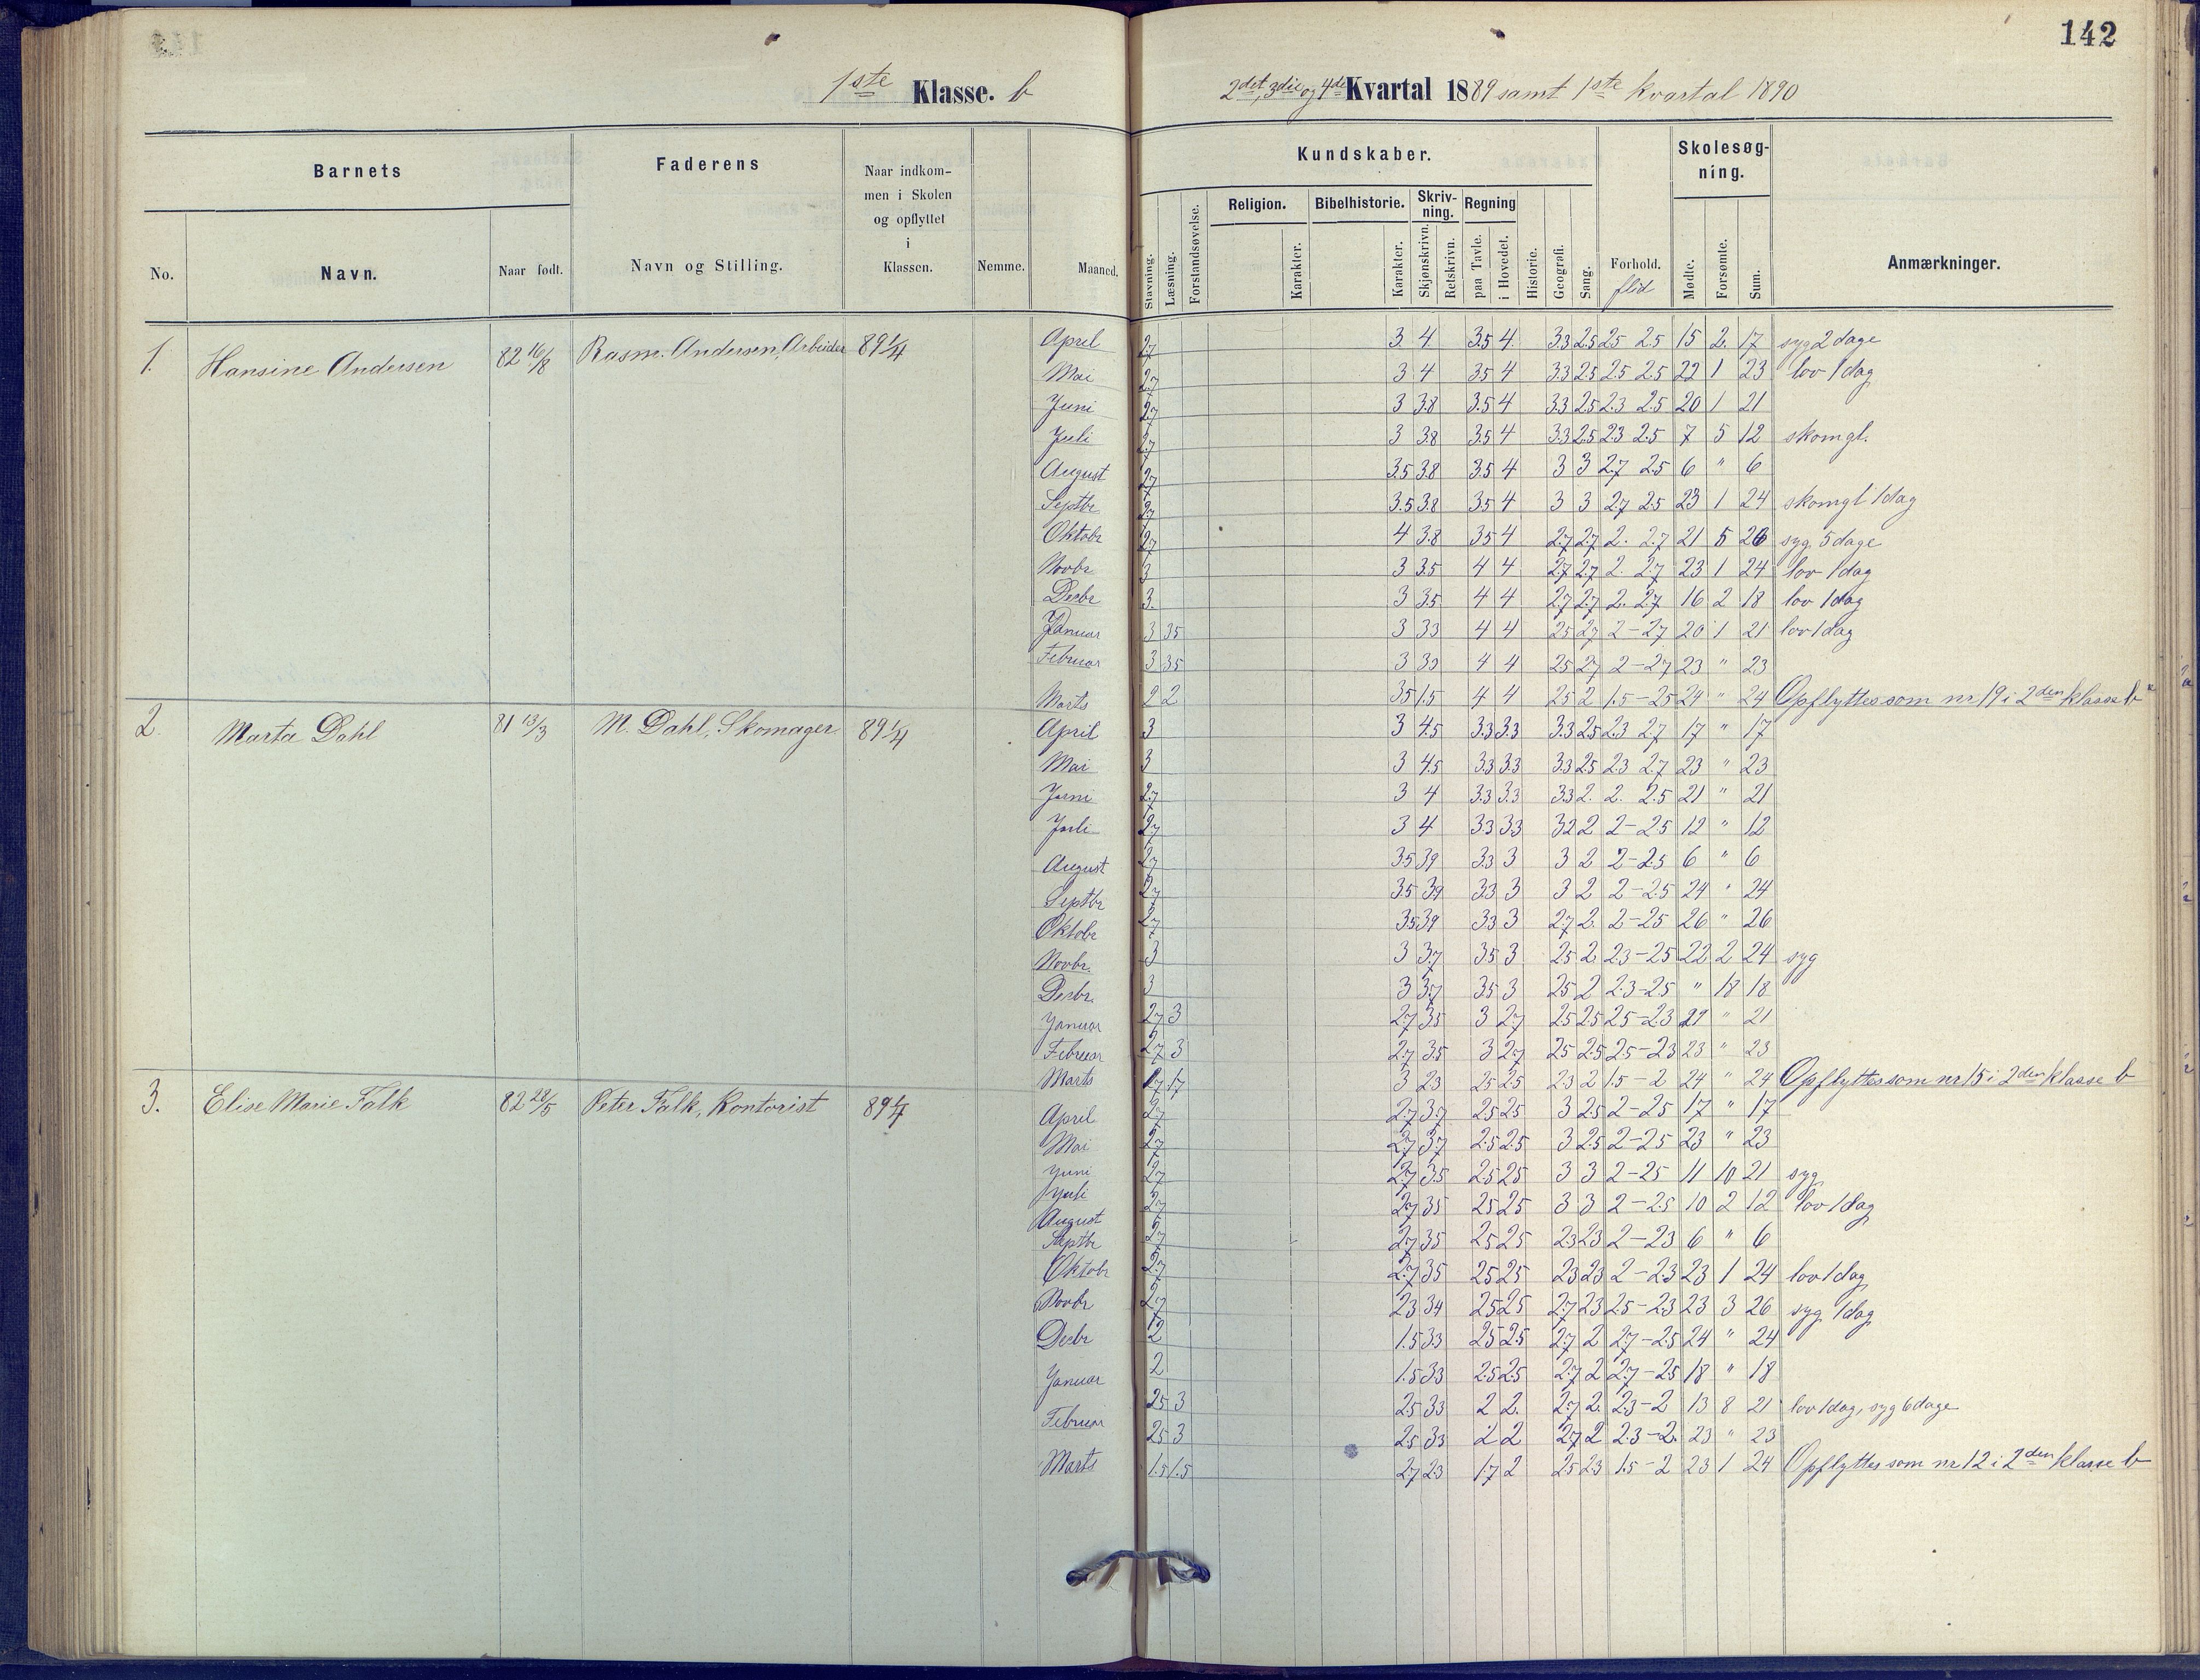 142
1ste Klasse. b
2det, 3die og 4de Kvartal 1889 samt 1ste kvartal 1890
Barnets
Faderens
Naar indkommen i Skolen og opflyttet i Klassen.
Nemme.
Maaned.
No.
Navn.
Naar født.
Navn og Stilling.
Kundskaber.
Skolesøgning.
Stavning.
Læsning.
Forstandsøvelse.
Religion.
Karakter.
Bibelhistorie.
Karakter.
Skrivning.
Skjønskrivn.
Retskrivn.
Regning
paa Tavle.
i Hovedet.
Historie.
Geografi.
Sang.
Forhold.
flid
Mødte.
Forsømte.
Sum.
Anmærkninger.
1. Hansine Andersen 82 16/8 Rasm. Andersen, Arbeider 89 1/4
April 2.7 3. 4. 3.5 4. 3.3 2.5 2.5 2.5 15 2. 17 syg 2 dage
Mai 2.7 3 4 3.5 4 3.3 2.5 2.5 2.5 22 1 23 lov 1 dag
Juni 2.7 3 3.8 3.5 4 3.3 2.5 2.3 2.5 20 1 21
Juli 2.7 3 3.8 3.5 4 3.3 2.5 2.3 2.5 7 5 12 skomgl.
August 2.7 3.5 3.8 3.5 4 3 3 2.7 2.5 6 " 6
Septbr 2.7 3.5 3.8 3.5 4 3 3 2.7 2.5 23 1 24 skomgl 1 dag
Oktobr 2.7 4 3.8 3.5 4 2.7 2.7 2. 2.7 21 5 26 syg. 5 dage
Novbr 3 3 3.5 4 4 2.7 2.7 2. 2.7 23 1 24 lov 1 dag
Desbr 3. 3 3.5 4 4 2.7 2.7 2. 2.7 16 2 18 lov 1 dag
Januar 3 3.5 3 3.3 4 4 2.5 2.7 2-2.7 20 1 21 lov 1 dag
Februar 3 3.5 3 3.3 4 4 2.5 2.7 2-2.7 23 " 23
Marts 2 2 3.5 1.5 4 4 2.5 2 1.5-2.5 24 " 24 Opflyttes som nr 19 i 2den klasse b
2. Marta Dahl 81 13/3 M. Dahl, Skomager 89 1/4
April 3 3 4.5 3.3 3.3 3.3 2.5 2.3 2.7 17 " 17
Mai 3 3 4.5 3.3 3.3 3.3 2.5 2.3 2.7 23 " 23
Juni 2.7 3 4 3.3 3.3 3.3 2. 2. 2.5 21 " 21
Juli 2.7 3 4 3.3 3.3 3.2 2 2-2.5 12 " 12
August 2.7 3.5 3.9 3.3 3 3 2 2-2.5 6 " 6
Septbr 2.7 3.5 3.9 3.3 3 3 2 2-2.5 24 " 24
Oktobr 2.7 3.5 3.9 3.3 3 2.7 2. 2-2.5 26 " 26
Novbr. 3 3 3.7 3.5 3 2.5 2 2.3-2.5 22 2 24 syg
Desbr. 3 3 3.7 3.5 3 2.5 2 2.3-2.5 " 18 18
Januar 2.7 3 2.7 3.5 3 2.7 2.5 2.5 2.5-2.3 21 " 21
Februar 2.7 3 2.7 3.5 3 2.7 2.5 2.5 2.5-2.3 23 " 23
Marts 1.7 1.7 3 2.3 2.5 2.5 2.3 2 1.5-2 24 " 24 Opflyttes som nr 15 i 2den klasse b
3. Elise Marie Falk 82 28/5 Peter Falk, Kontorist 89 1/4
April 2.7 2.7 3.7 2.5 2.5 3 2.5 2-2.5 17 " 17
Mai 2.7 2.7 3.7 2.5 2.5 3 2.5 2-2.5 23 " 23
Juni 2.7 2.7 3.5 2.5 2.5 3 3 2-2.5 11 10 21 syg
Juli 2.7 2.7 3.5 2.5 2.5 3 3 2-2.5 10 2 12 lov 1 dag
August 2.7 2.7 3.5 2.5 2.5 2.3 2.3 2-2.3 6 " 6
Septbr
Oktobr 2.7 2.7 3.5 2.5 2.5 2.3 2.3 2-2.3 23 1 24 lov 1 dag
Novbr 2.7 2.3 3.4 2.5 2.5 2.7 2.3 2.5-2.3 23 3 26 syg 1 dag
Desbr 2 1.5 3.3 2.5 2.5 2.7 2 2.7-2.5 24 " 24
Januar 2 1.5 3.3 2.5 2.5 2.7 2 2.7-2.5 18 " 18
2.5 3 2.5 3.3 2 2. 2.7 2. 2.3-2 13 8 21 lov 1 dag, syg 6 dage
Februar 2.5 3 2.5 3.3 2 2 2.7 2 2.3-2. 23 " 23
Marts 1.5 1.5 2.7 2.3 1.7 2 2.5 2.3 1.5-2 23 1 24 Opflyttes som nr 12 i 2den klasse b